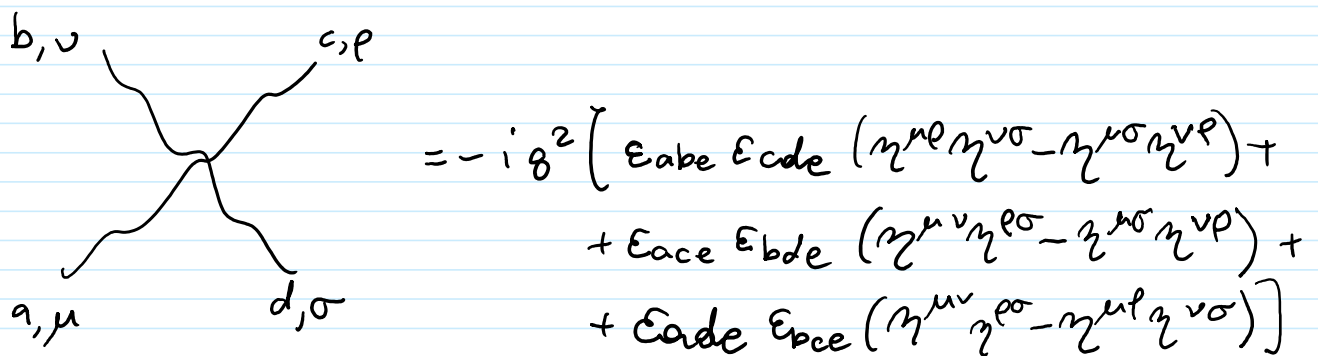 b,ν c,ρ
= -i g² [ εabe εcde (η^{μρ} η^{νσ} - η^{μσ} η^{νρ}) +
+ εace εbde (η^{μν} η^{ρσ} - η^{μσ} η^{νρ}) +
a,μ d,σ + εade εbce (η^{μν} η^{ρσ} - η^{μρ} η^{νσ}) ]